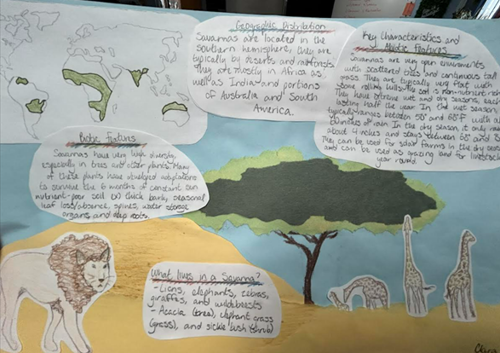 Geographic Distribution
Savannas are located in the
southern hemisphere, they are
typically by deserts and rainforests.
They are mostly in Africa as
well as India and portions
of Australia and South
America.
Key Characteristics and
Abiotic Features
Savannas are very open environments
with scattered trees and continuous tall
grass. They are typically very flat with
some rolling hills. The soil is non-nutrient-rich.
They have intense wet and dry seasons, each
lasting half the year. In the wet season, it
typically between 50° and 68°F with
of rain. In the dry season, it only
about 4 inches and between 68° and
They can be used for solar farms in the dry season
and can be used as housing and for livestock
year round
Biotic Features
Savannas have very high diversity,
especially in trees and other plants. Many
of these plants have developed adaptations
to survive the 6 months of constant sun
nutrient-poor soil thick bark, seasonal
leaf loss/absence, spines, water storage
organs, and deep roots.
What lives in a Savanna?
- Lions, elephants, zebras,
giraffes, and wildebeasts
- Acacia (tree), elephant grass
(grass), and sickle bush (shrub)